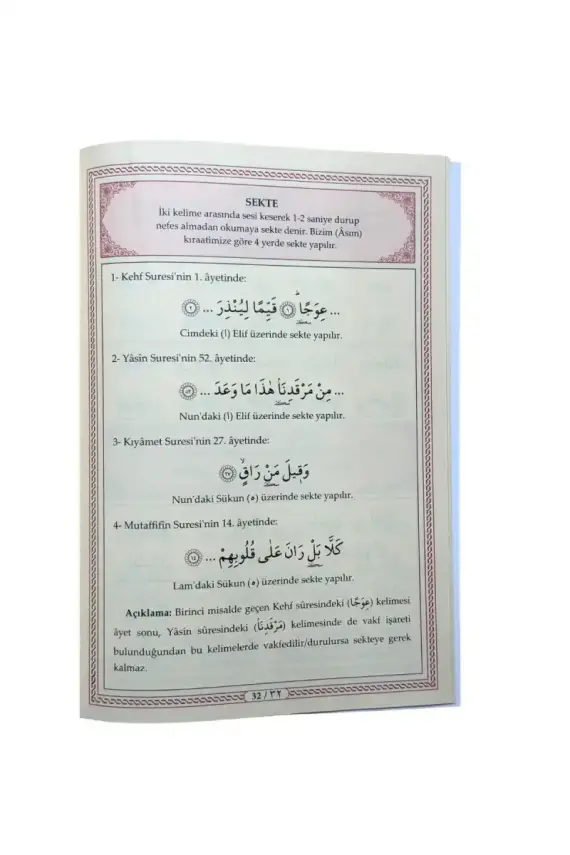 SEKTE
İki kelime arasında sesi keserek 1-2 saniye durup
nefes almadan okumaya sekte denir. Bizim (Âsım)
kıraatimize göre 4 yerde sekte yapılır.
1- Kehf Suresi'nin 1. âyetinde:
... عِوَجًاۜ ﴿١﴾ قَيِّمًا لِيُنْذِرَ ... ﴿٢﴾
Cimdeki (ا) Elif üzerinde sekte yapılır.
2- Yâsîn Suresi'nin 52. âyetinde:
... مِنْ مَرْقَدِنَاۢ هٰذَا مَا وَعَدَ ... ﴿٥٢﴾
Nun'daki (ا) Elif üzerinde sekte yapılır.
3- Kıyâmet Suresi'nin 27. âyetinde:
وَق۪يلَ مَنْ رَاقٍۙ ﴿٢٧﴾
Nun'daki Sükun (ه) üzerinde sekte yapılır.
4- Mutaffifîn Suresi'nin 14. âyetinde:
كَلَّا بَلْ رَانَ عَلٰى قُلُوبِهِمْ ... ﴿١٤﴾
Lam'daki Sükun (ه) üzerinde sekte yapılır.
Açıklama: Birinci misalde geçen Kehf sûresindeki (عِوَجًا) kelimesi
âyet sonu, Yâsin sûresindeki (مَرْقَدِنَا) kelimesinde de vakf işareti
bulunduğundan bu kelimelerde vakfedilir/durulursa sekteye gerek
kalmaz.
32 / ٣٢